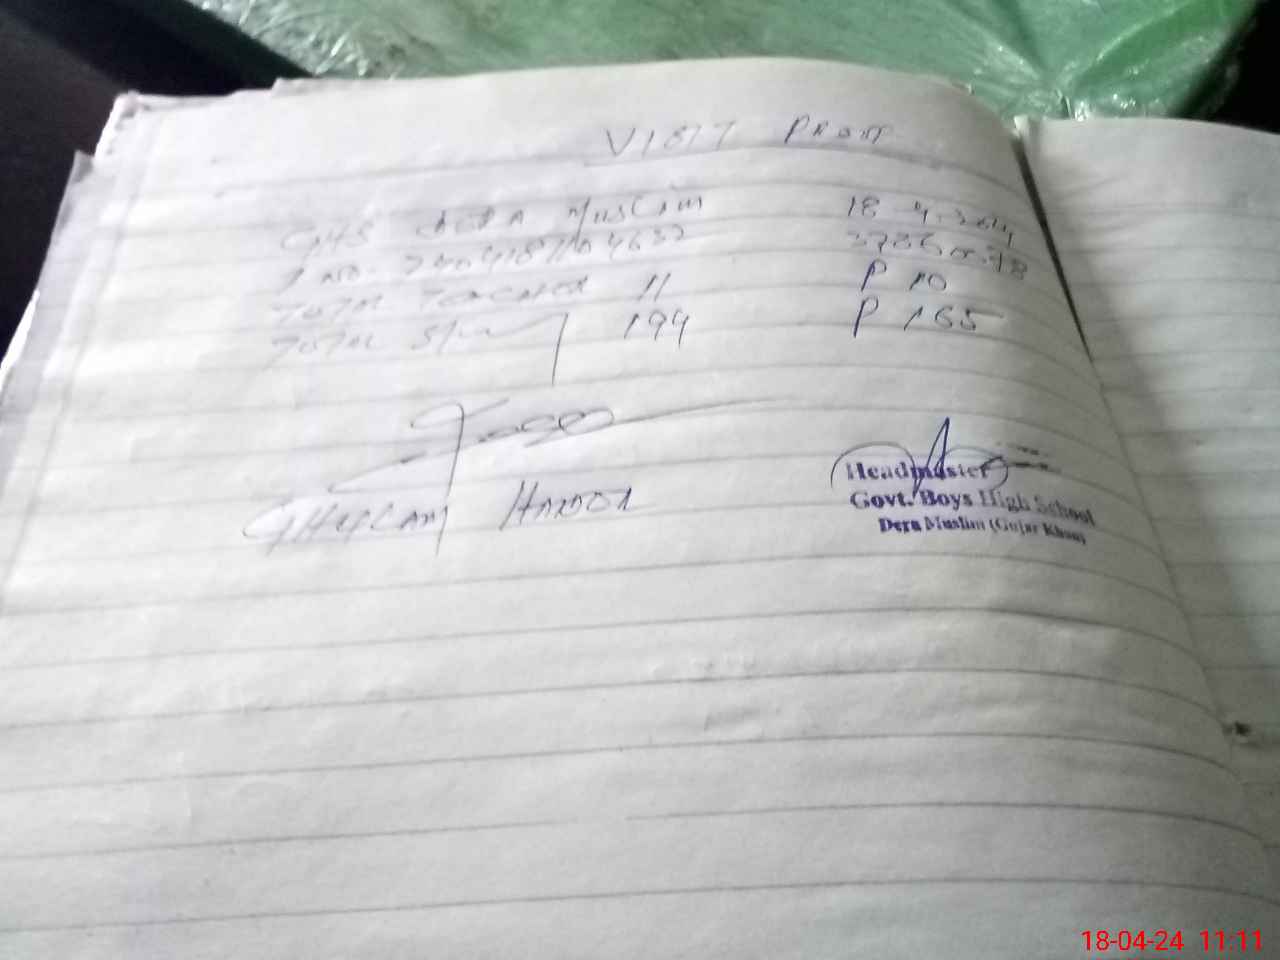 VISIT PROOF
GHS DERA Muslim 18-4-2024
TOTAL TEACHER 11 P 10
TOTAL 199 P 165
GHULAM
Headmaster
Govt. Boys High School
Dera Muslim (Gujar Khan)
18-04-24 11:11